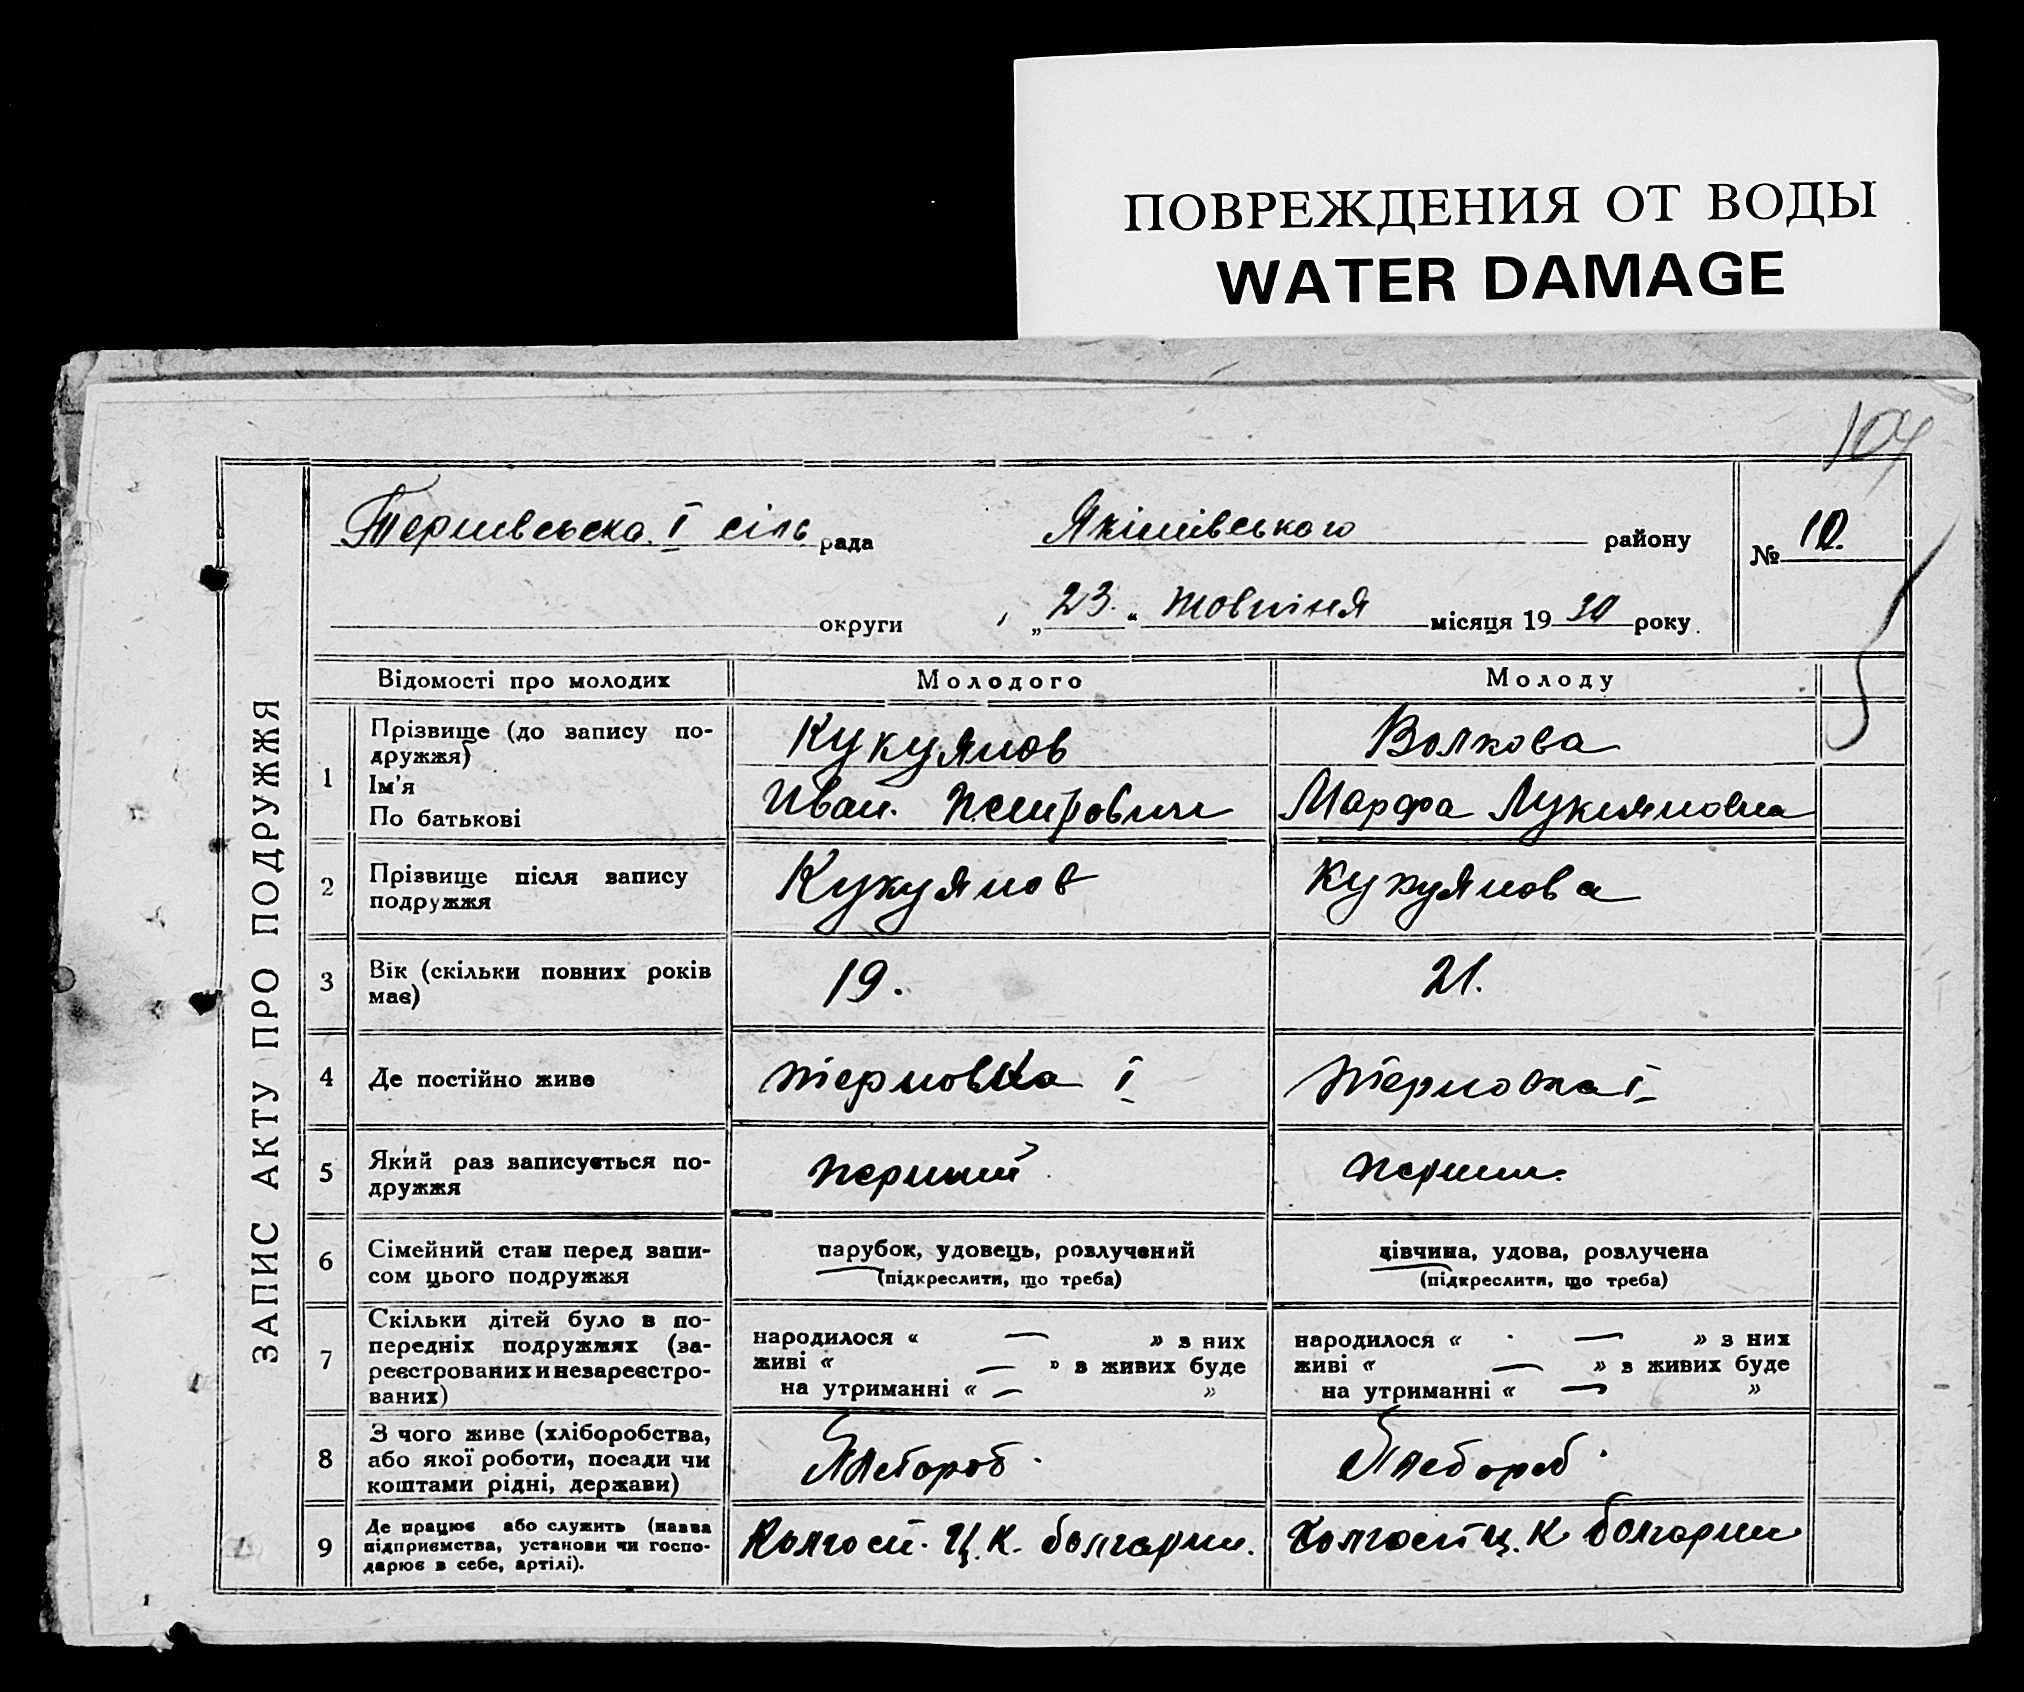 ПОВРЕЖДЕНИЯ ОТ ВОДЫ
WATER DAMAGE
104
ЗАПИС АКТУ ПРО ПОДРУЖЖЯ
Тернівська I сіль рада Якимівського району
№ 10.
округи „23.“ Жовтня місяця 1930 року
Відомості про молодих Молодого Молоду
1 Прізвище (до запису подружжя) Кукуянов Волкова
Ім'я
По батькові Иван. Петрович Марфа Лукияновна
2 Прізвище після запису подружжя Кукуянов Кукуянова
3 Вік (скільки повних років має) 19. 21.
4 Де постійно живе Терновка I Терновка I
5 Який раз записується подружжя перший перши.
6 Сімейний стан перед записом цього подружжя парубок, удовець, розлучений дівчина, удова, розлучена
(підкреслити, що треба) (підкреслити, що треба)
7 Скільки дітей було в попередніх подружжях (зареєстрованих и незареєстрованих)
народилося « — » з них народилося « — » з них
живі « — » в живих буде живі « — » в живих буде
на утриманні « — » на утриманні « — »
8 З чого живе (хліборобства, або якої роботи, посади чи коштами рідні, держави) Хлебороб. Хлебороб.
9 Де працює або служить (назва підприємства, установи чи господарює в себе, артілі). Колгосп. Ц.К. болгарии. Колгосп Ц.К болгарии